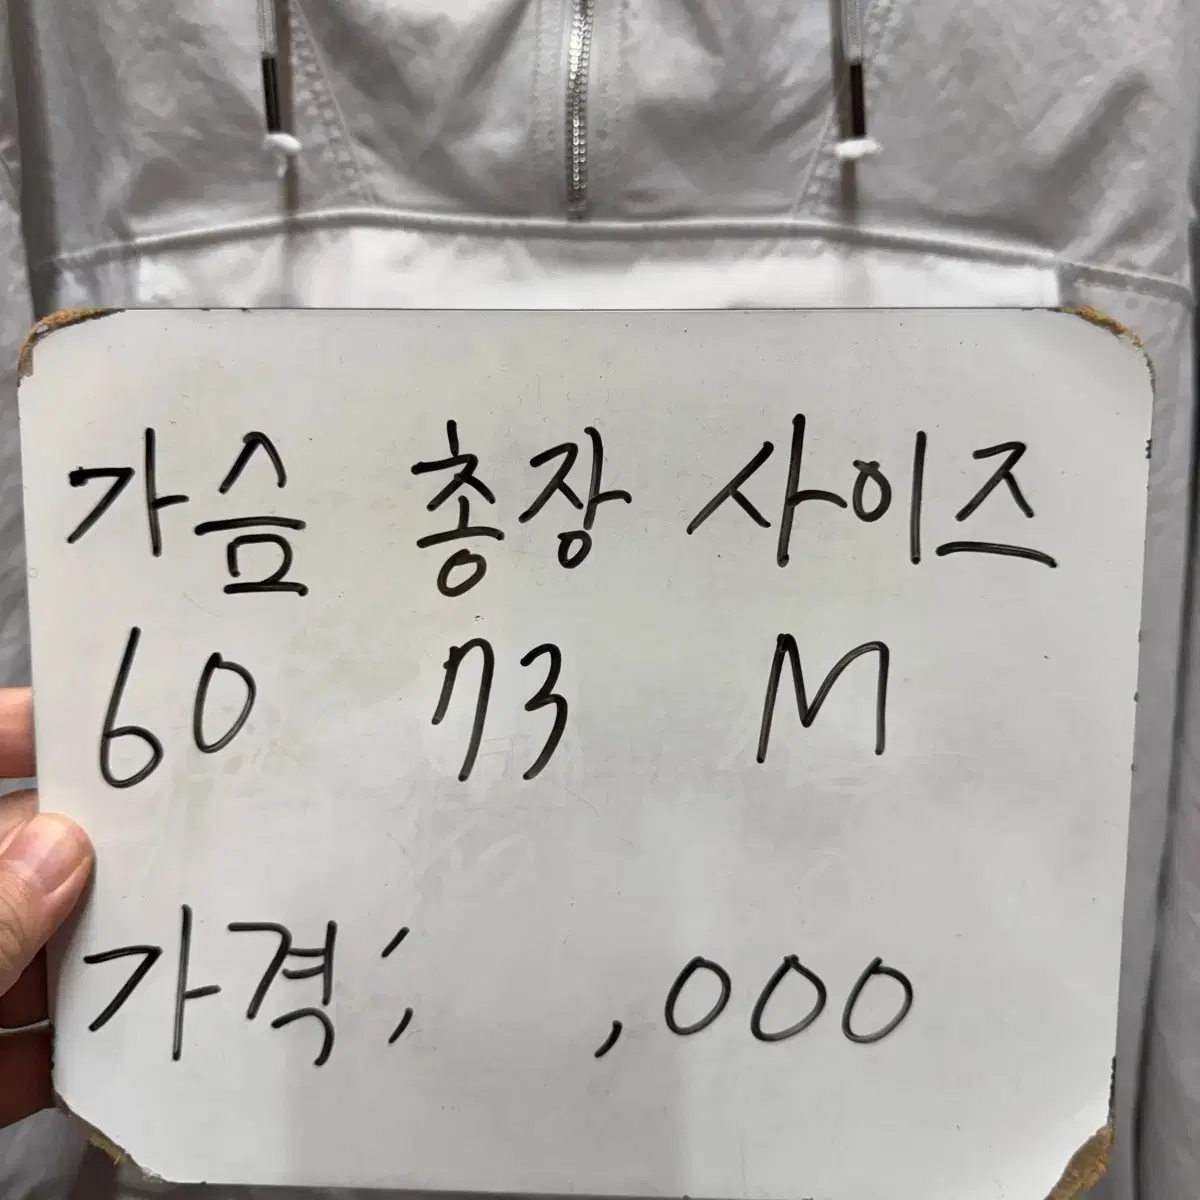 가슴 총장 사이즈
60 73 M
가격; ,000